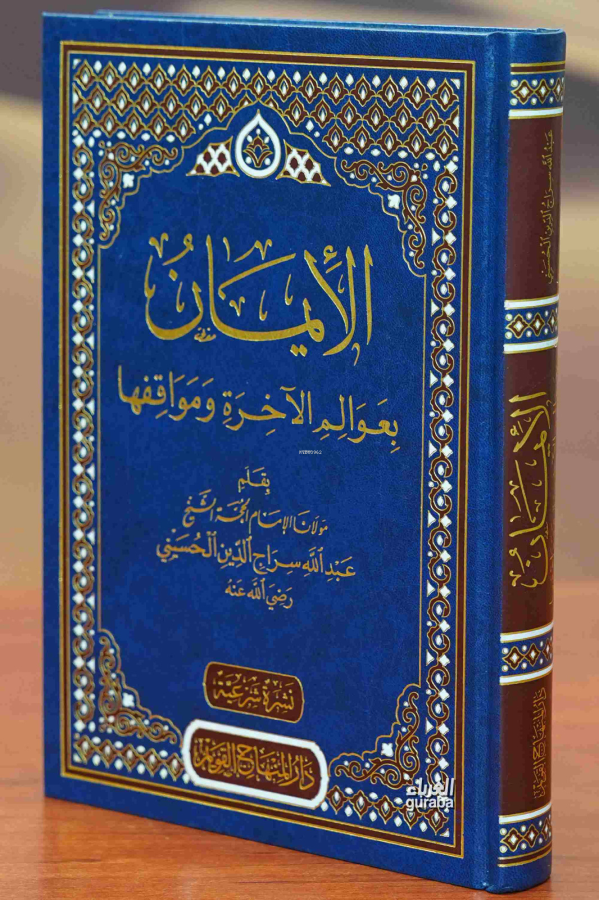 الإِيمَانُ
بِعَوَالِمِ الآخِرَةِ وَمَوَاقِفِهَا
بِقَلَمِ
مَوْلَانَا الإِمَامِ الحُجَّةِ الشَّيْخِ
عَبْدِ اللَّهِ سِرَاجِ الدِّينِ الْحُسَيْنِي
رَضِيَ اللَّهُ عَنْهُ
نَشْرَةٌ شَرْعِيَّةٌ
دَارُ الْمِنْهَاجِ الْقَوِيمِ
عَبْدُ اللَّهِ سِرَاجُ الدِّينِ الْحُسَيْنِي
الإِيمَانُ
دَارُ الْمِنْهَاجِ الْقَوِيمِ
الغرباء
guraba